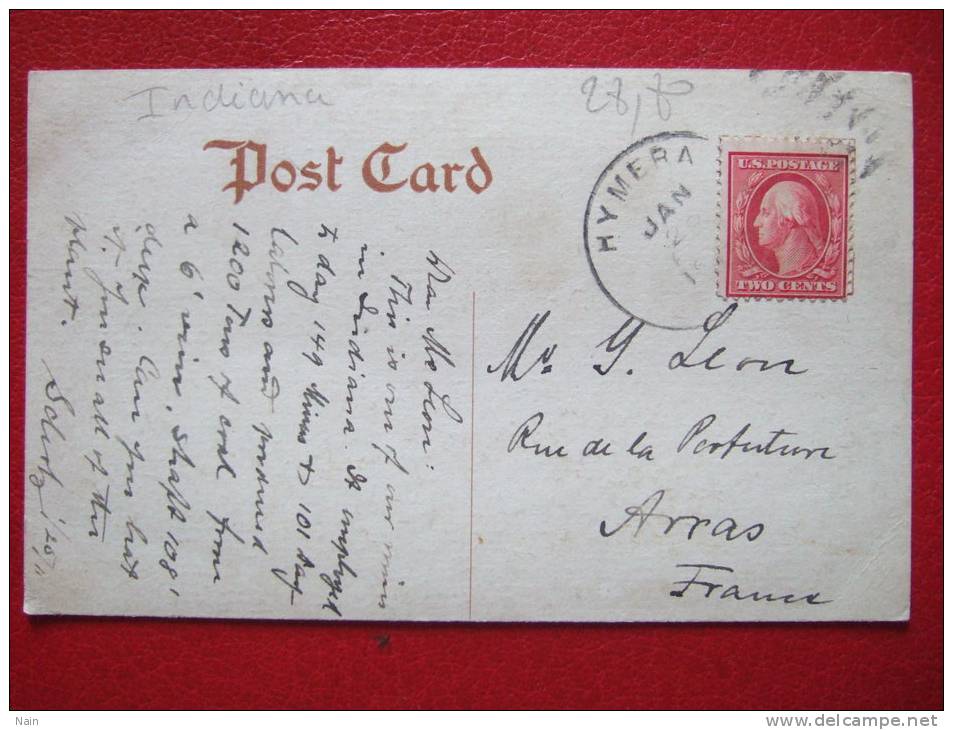 Indiana
28,80
Post Card
HYMERA
JAN
U.S. POSTAGE
TWO CENTS
Dear Mr Leon:
This is one of our mines
in Indiana. It employed
to day 149 Miners & 101 day
labors and produced
1200 Tons of coal from
a 6' vein, Shaft 108'
deep. Can you beat
it. you all of the
plant.
Mr G. Leon
Rue de la
Arras
France
Nain
www.delcampe.net